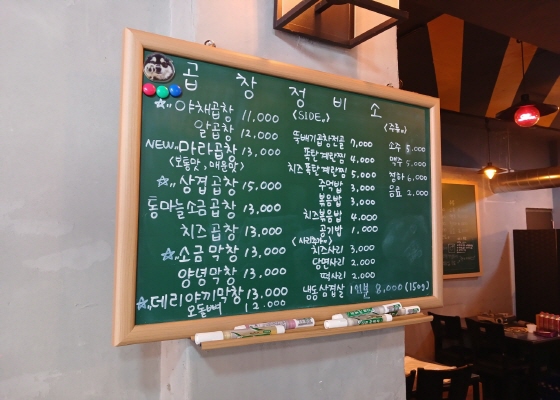 곱창정비소
☆야채곱창 11,000
알곱창 12.000
NEW 마라곱창 13,000
(보통맛, 매운맛)
☆삼겹곱창 15,000
통마늘소금곱창 13,000
치즈곱창 13,000
☆소금막창 13,000
양념막창 13,000
☆데리야끼막창 13,000
오돌뼈 12.000
(SIDE)
뚝배기곱창전골 7,000
폭탄계란찜 4.000
치즈폭탄계란찜 5.000
주먹밥 3,000
볶음밥 3,000
치즈볶음밥 4.000
공기밥 1.000
(사리추가)
치즈사리 3,000
당면사리 2.000
떡사리 2.000
냉동삼겹살 1인분 8,000 (150g)
(주류)
소주 5.000
맥주 5.000
청하 6.000
음료 2.000